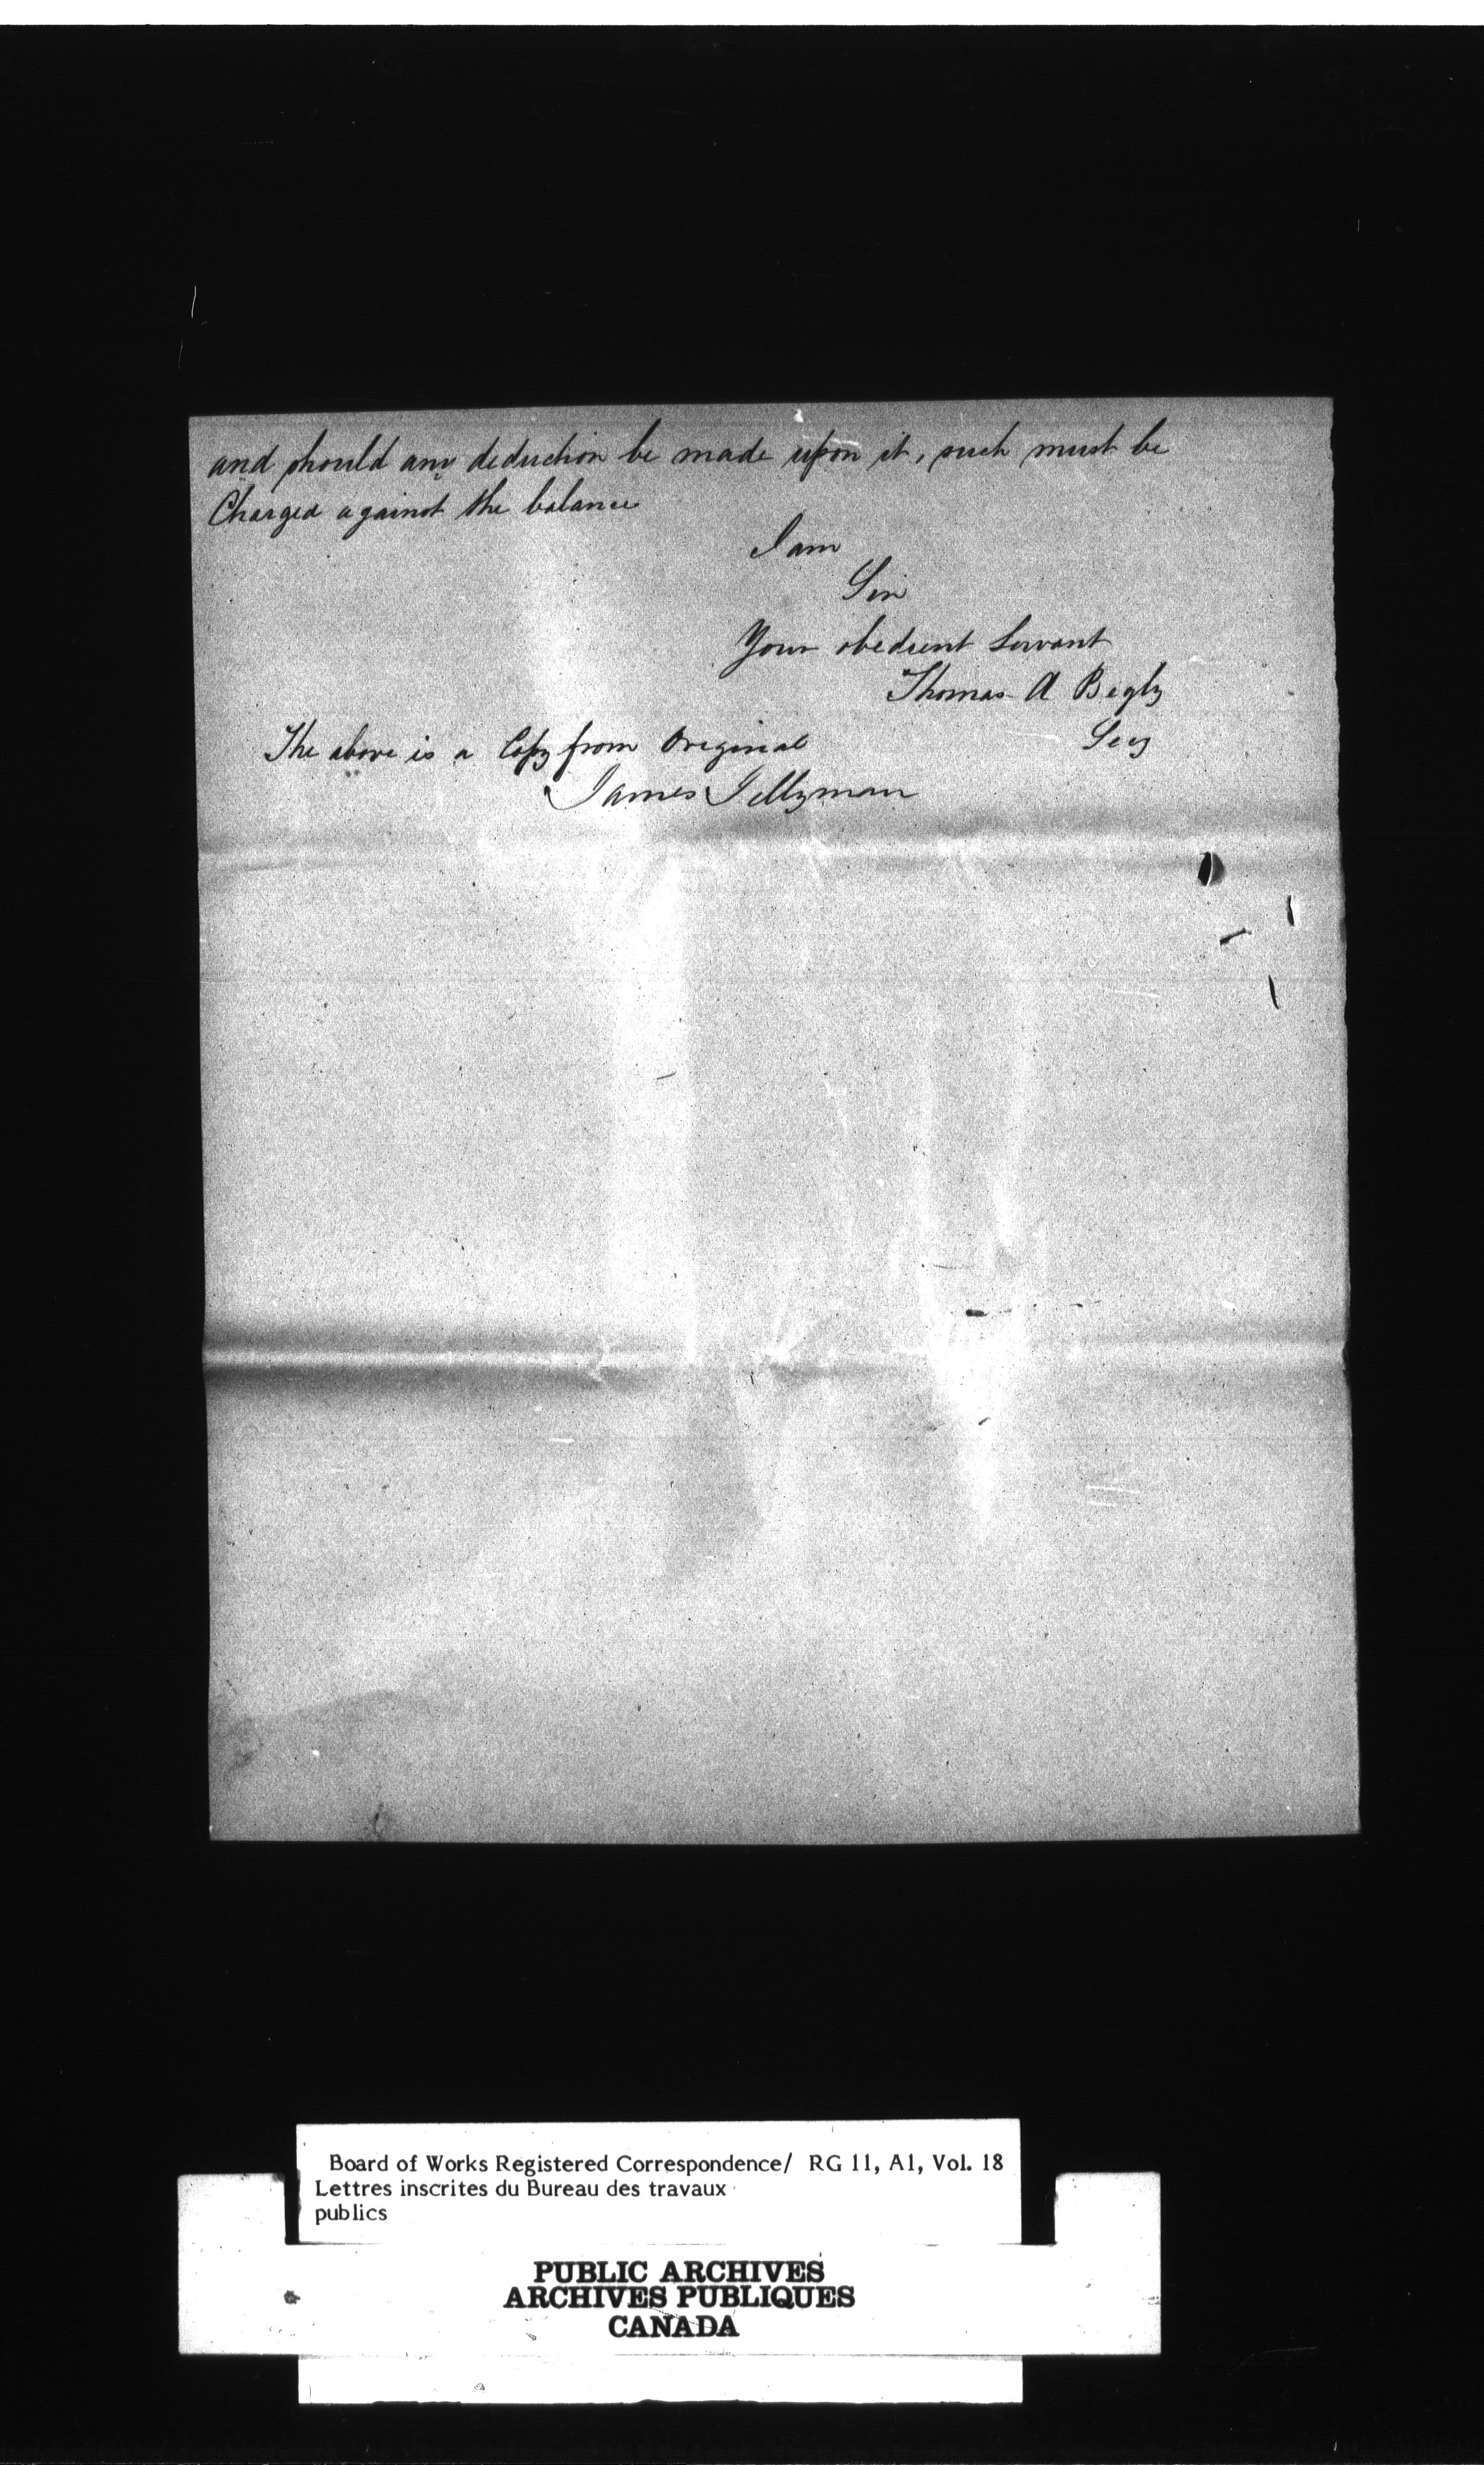 and should any deduction be made upon it, such must be
Charged against the balance
I am
Sir
Your obedient Servant
Thomas A Begly
Secy
The above is a Copy from Original
James Jellyman
Board of Works Registered Correspondence/ RG 11, A1, Vol. 18
Lettres inscrites du Bureau des travaux
publics
PUBLIC ARCHIVES
ARCHIVES PUBLIQUES
CANADA